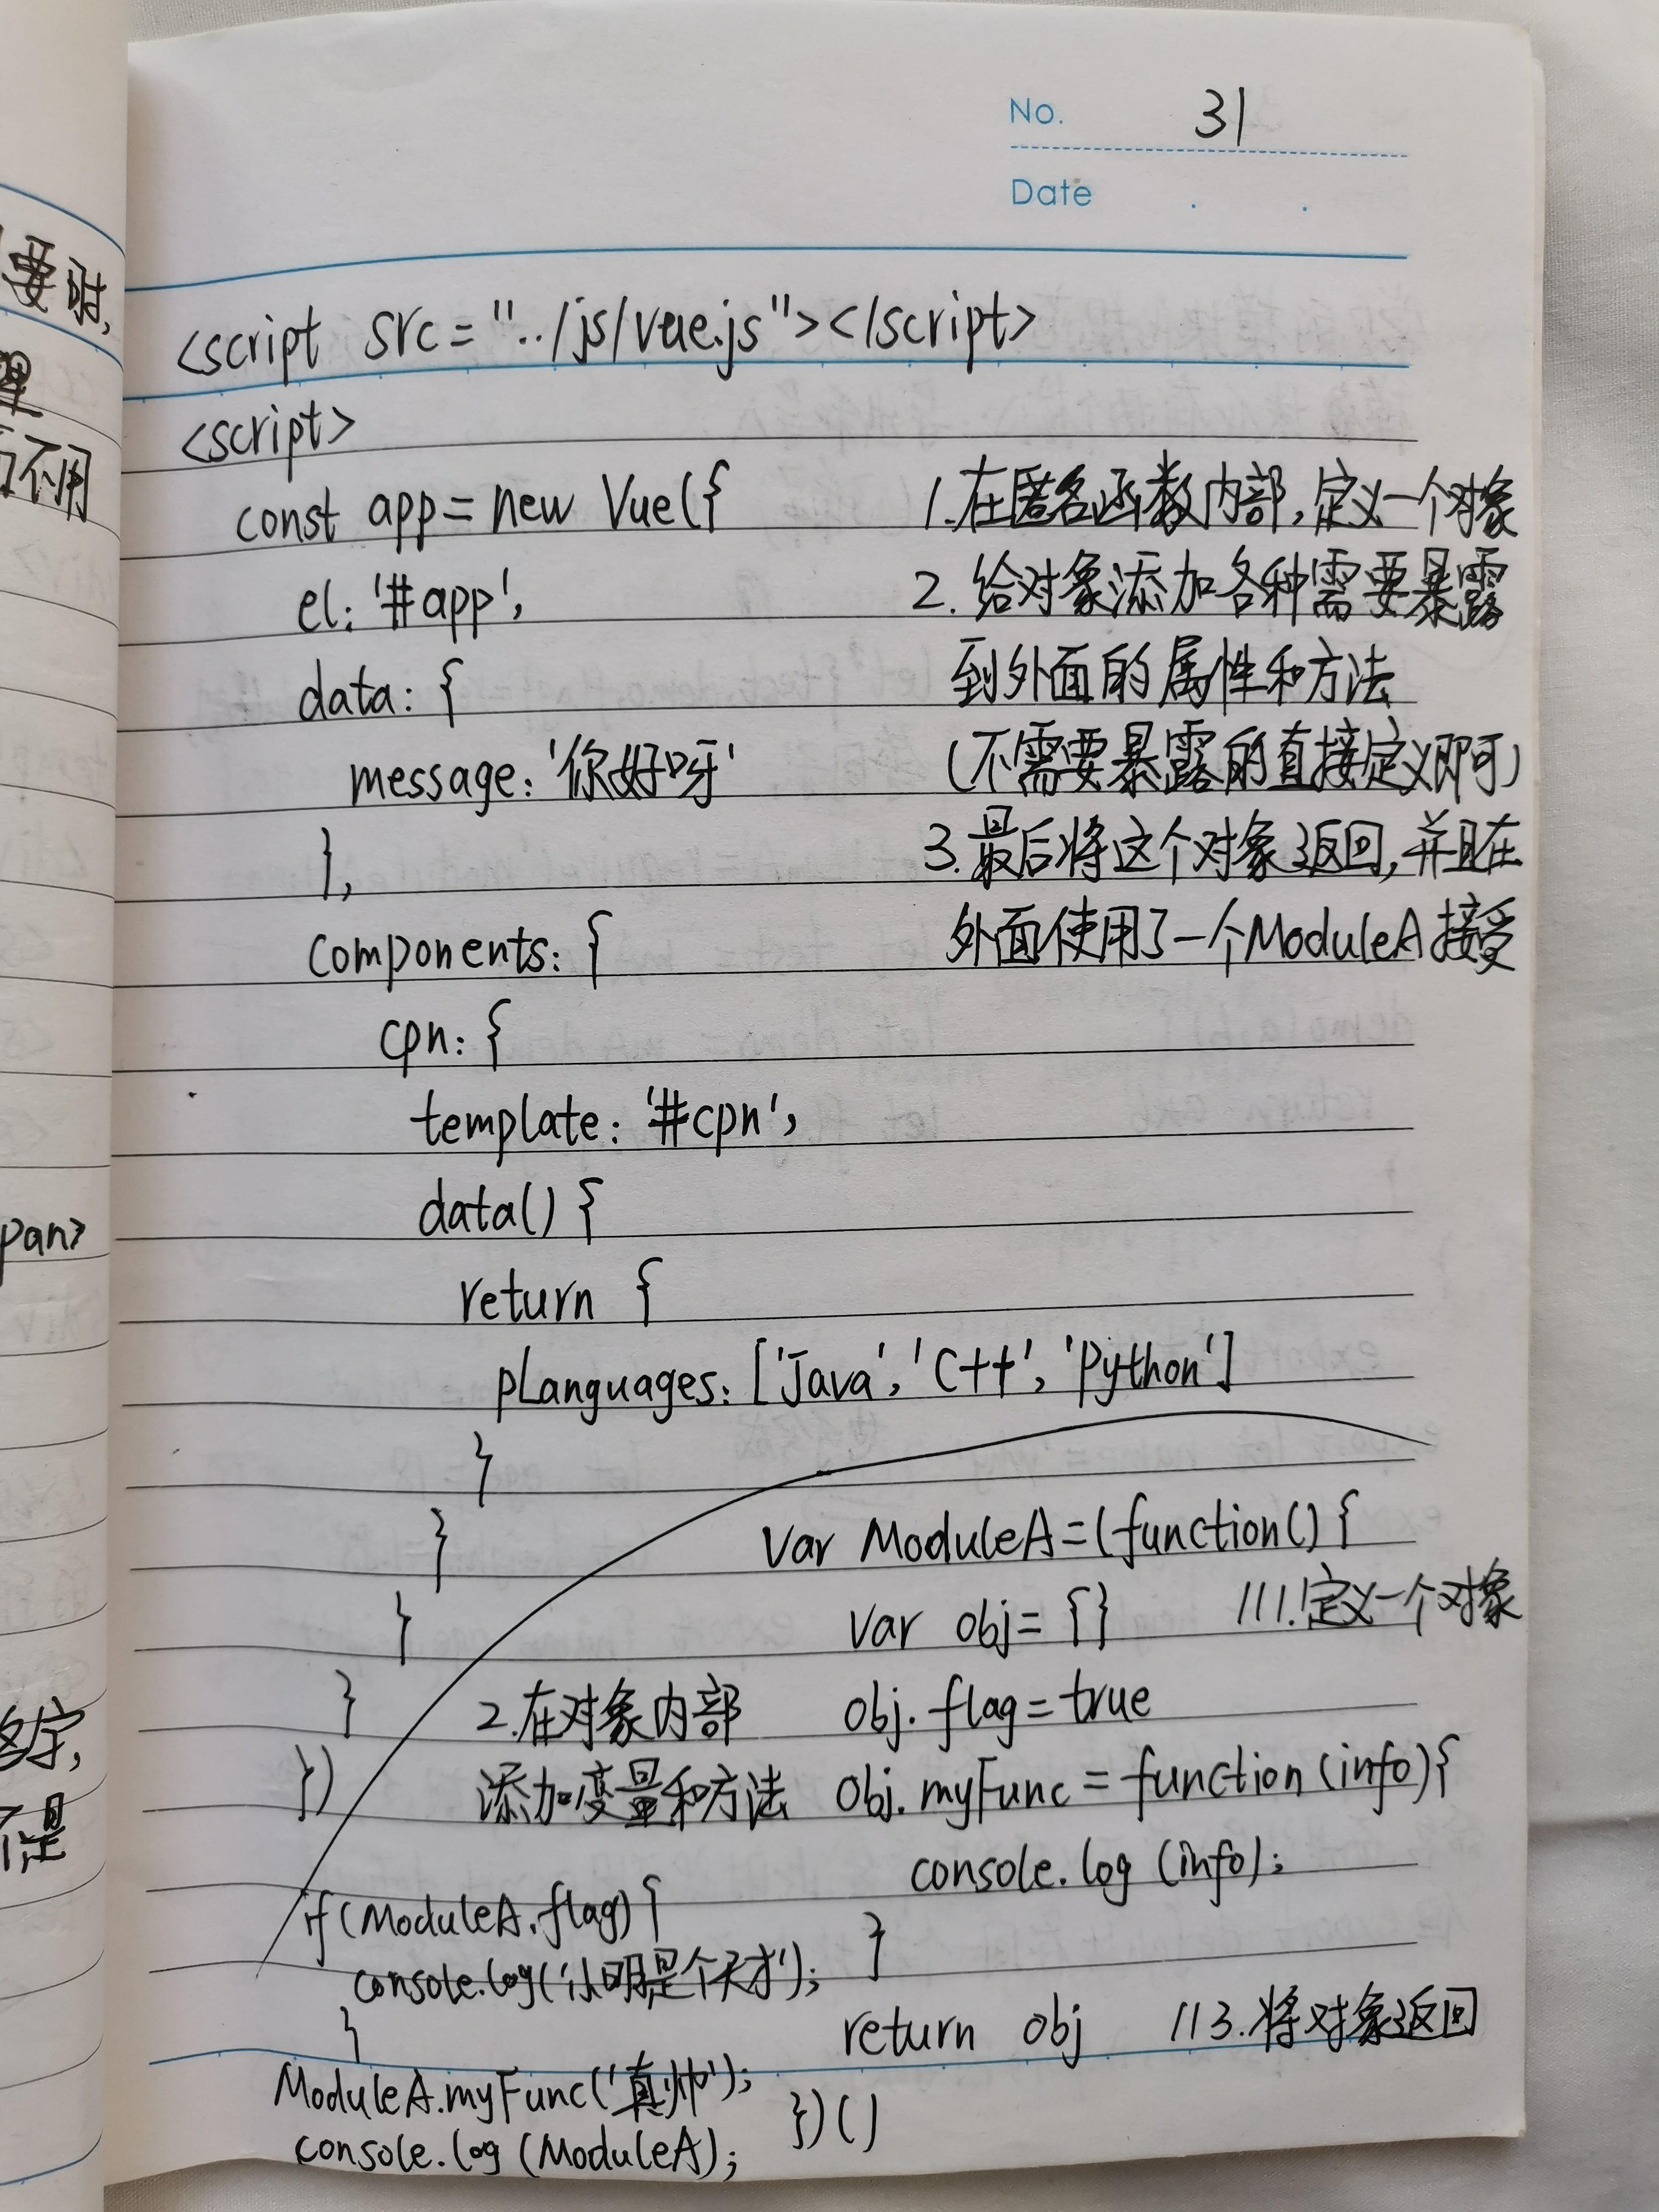 No. 31
Date
<script src="../js/vue.js"></script>
<script>
const app = new Vue({
el: '#app',
data: {
message: '你好呀'
},
components: {
cpn: {
template: '#cpn',
data() {
return {
pLanguages: ['Java', 'C++', 'Python']
}
}
}
}
})
1.在匿名函数内部,定义一个对象
2.给对象添加各种需要暴露
到外面的属性和方法
(不需要暴露的直接定义即可)
3.最后将这个对象返回,并且在
外面使用了一个ModuleA接受
var ModuleA=(function() {
var obj= {} //1.定义一个对象
2.在对象内部
添加变量和方法
obj.flag=true
obj.myFunc = function(info){
console.log(info);
}
return obj //3.将对象返回
})()
if(ModuleA.flag){
console.log('小明是个天才');
}
ModuleA.myFunc('真帅');
console.log(ModuleA);
要时,
理
不用
pan>
名字,
不是